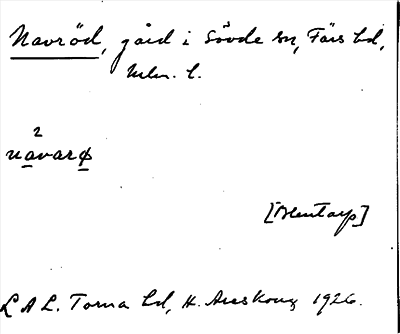 Navröd, gård i Sövde sn, Färs hd,
Mlm. l.
2
navarø
[Blentarp]
L A L. Torna hd, H. Areskoug 1926.